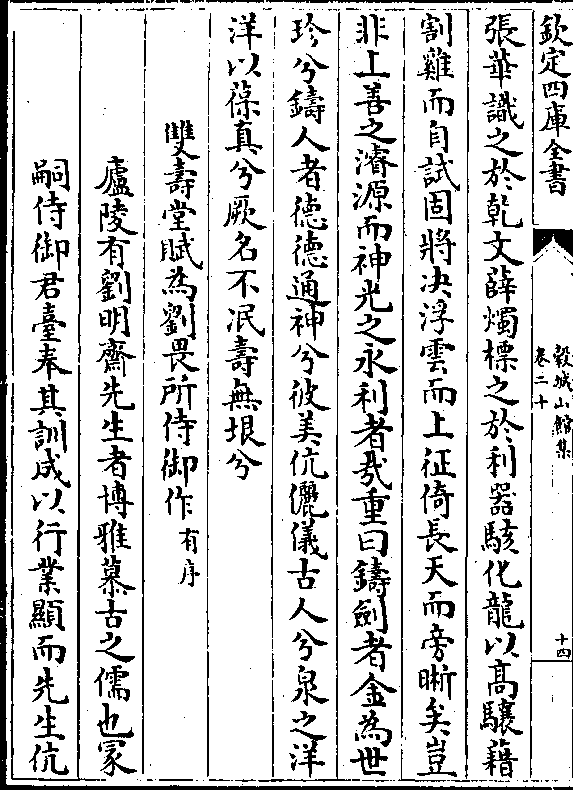 欽定四庫全書
糓城山館集
卷二十
十四
張華識之於乾文薛燭標之於利器駭化龍以髙驤藉
割雞而自試固將决浮雲而上征倚長天而旁晣矣豈
非上善之濬源而神光之永利者㢤重曰鑄劍者金為世
珍兮鑄人者徳徳通神兮彼美伉儷儀古人兮泉之洋
洋以葆真兮厥名不泯壽無垠兮
雙壽堂賦為劉畏所侍御作有序
廬陵有劉明齋先生者博雅慕古之儒也冡
嗣侍御君臺奉其訓成以行業顯而先生伉